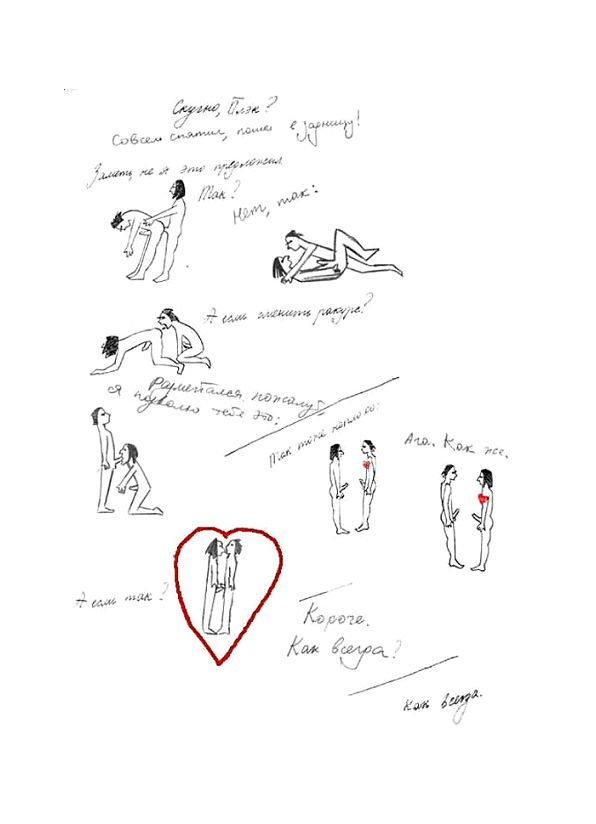 Скучно, Плэк?
Совсем спятил, пошел в задницу!
Заметь, не я это предложил
Так?
Нет, так:
А если сменить ракурс?
Размечтался. пожалуй
я позволю тебе это:
Так тоже неплохо:
Ага. Как же.
А если так?
Короче.
Как всегда?
Как всегда.